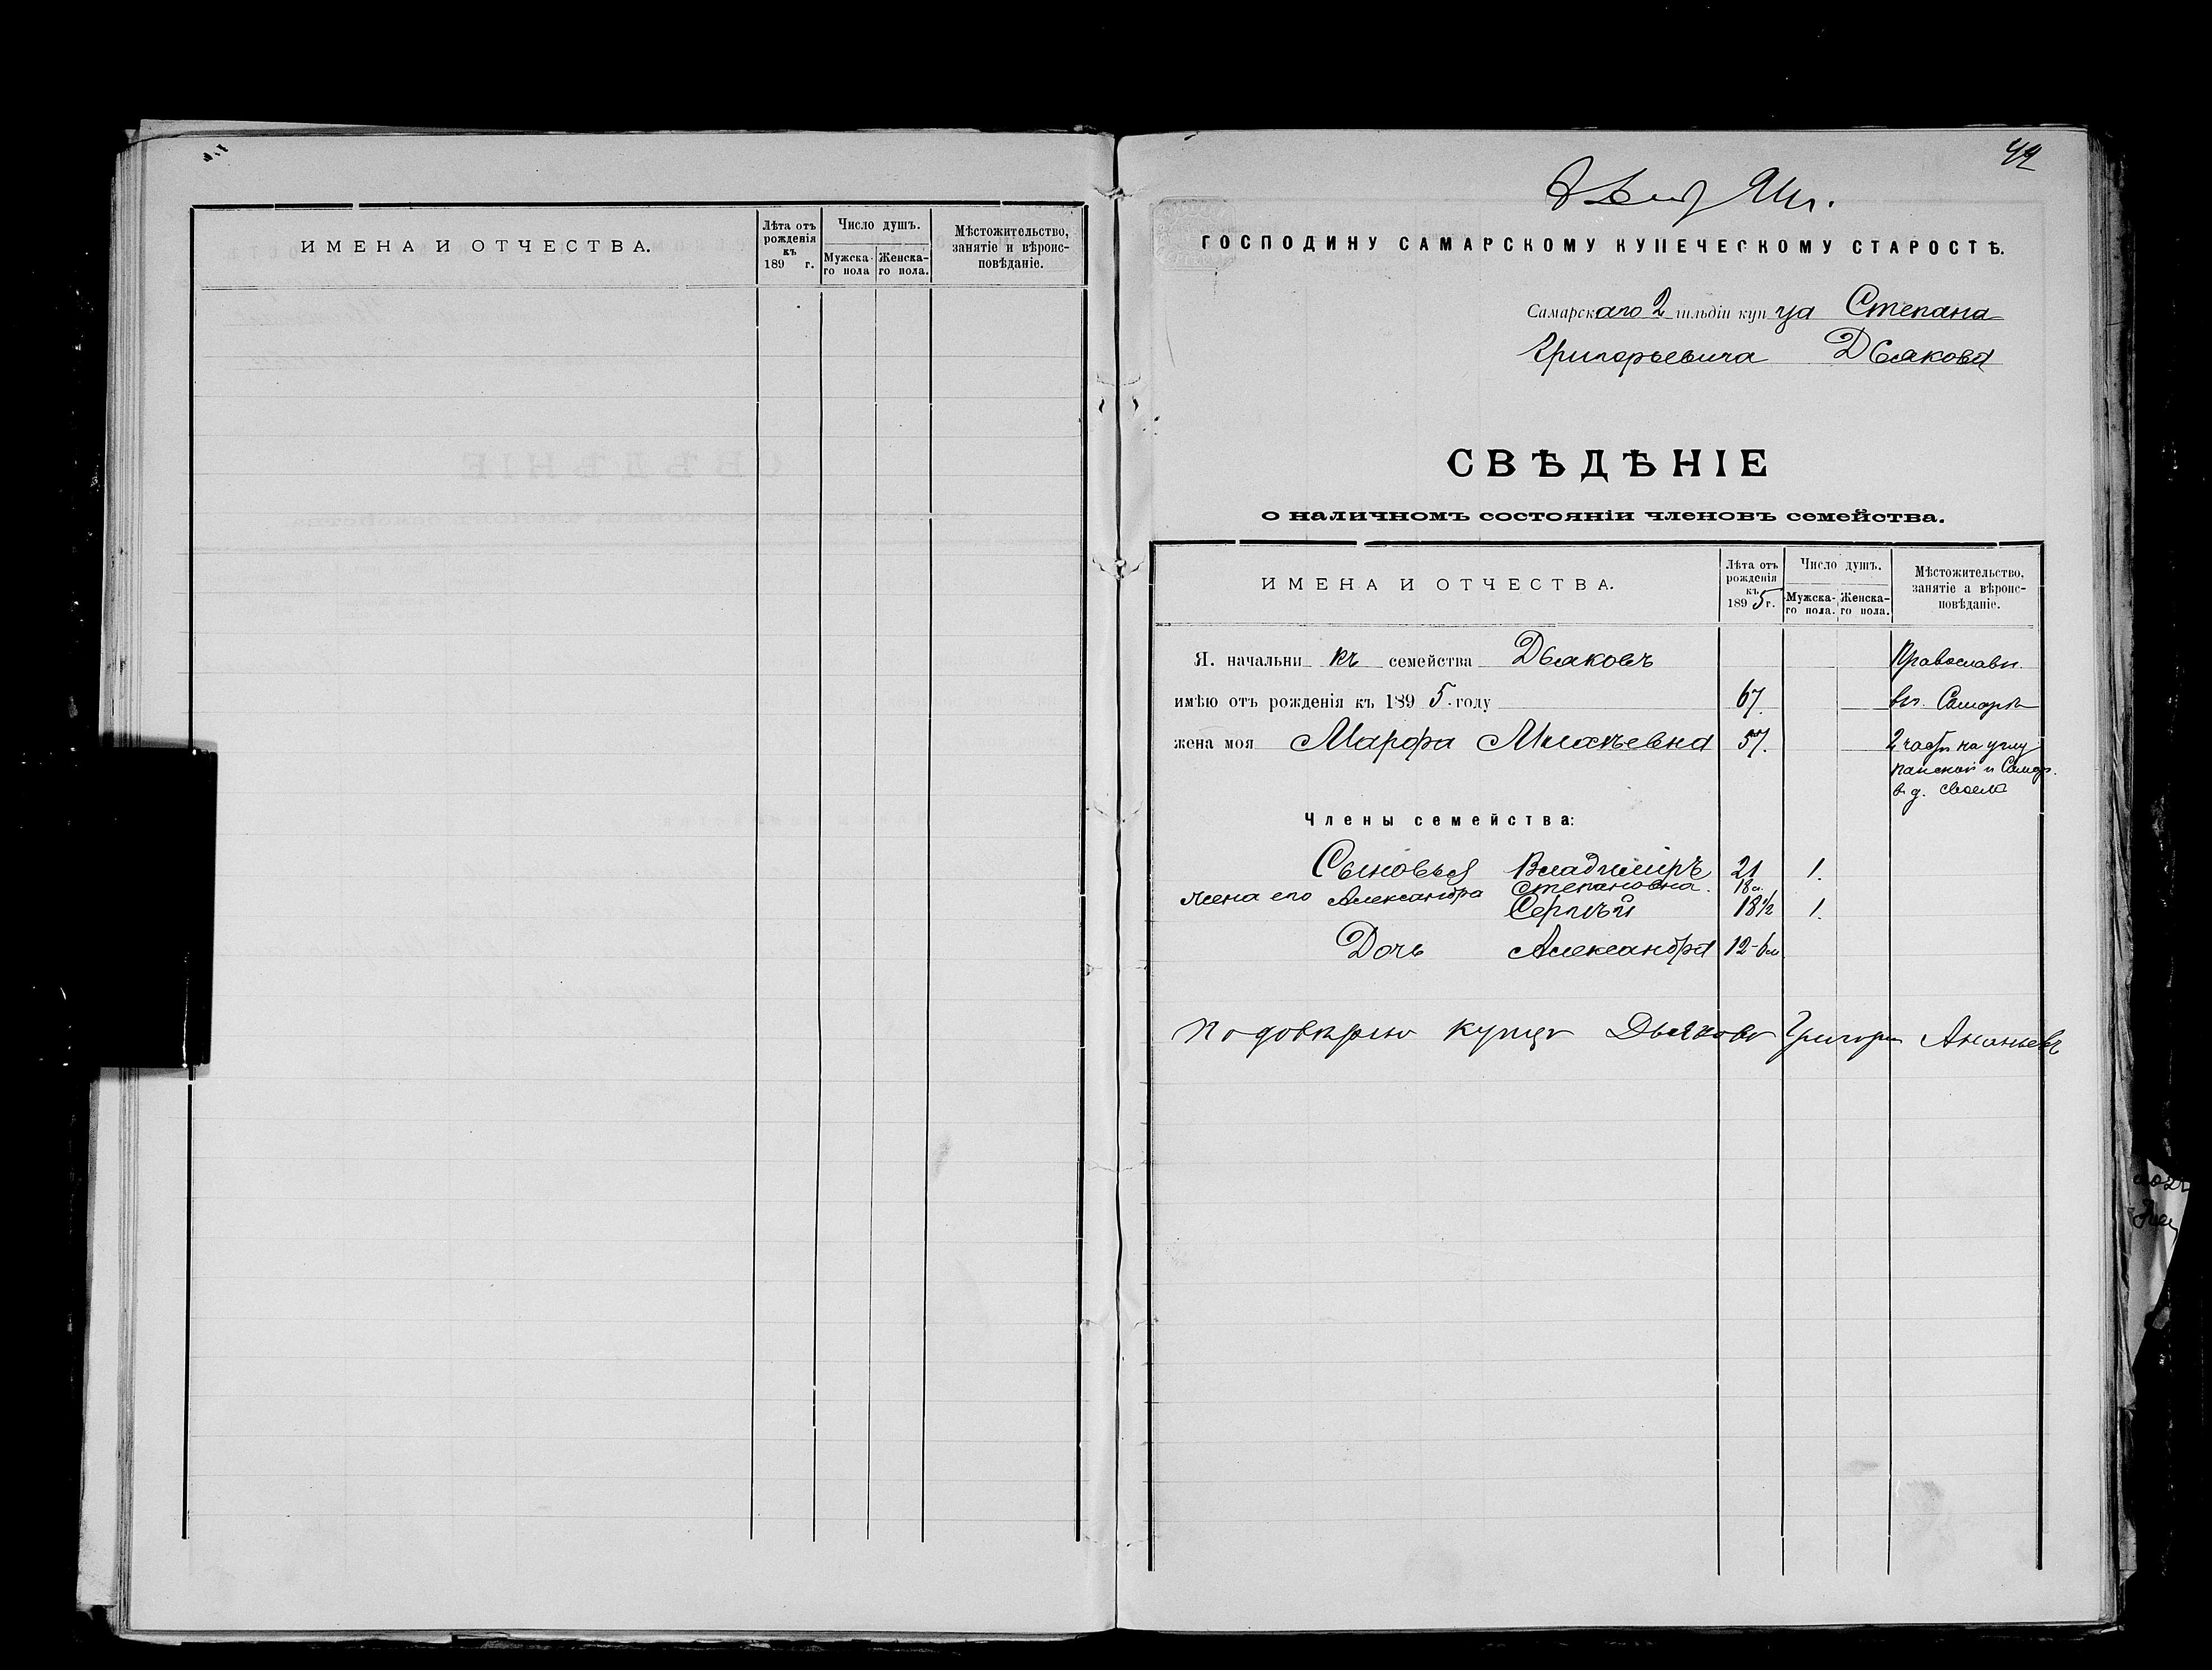 ИМЕНА И ОТЧЕСТВА.
Лѣта отъ рожденія къ 189 г.
Число душъ.
Мужска-го пола
Женска-го пола.
Мѣстожительство, занятіе и вѣроис-повѣданіе.
44
ГОСПОДИНУ САМАРСКОМУ КУПЕЧЕСКОМУ СТАРОСТѢ.
Самарскаго 2 гильдіи купца Степана
Григорьевича Дьякова
СВѢДѢНІЕ
о наличномъ состояніи членовъ семейства.
ИМЕНА И ОТЧЕСТВА.
Лѣта отъ рожденія къ 1895 г.
Число душъ.
Мужска-го пола.
Женска-го пола.
Мѣстожительство, занятіе а вѣроис-повѣданіе.
Я. начальникъ семейства Дьяковъ Православн.
имѣю отъ рожденія къ 1895 году 67. въ Самарѣ
жена моя Марфа 57. 2 части на углу
панской и Самар.
в д. своемъ
Члены семейства:
Сыновья Владиміръ 21 1.
жена его Александра Степановна. 18 л.
Сергѣй 18 1/2 1.
Дочь Александра 12-6м
По довѣрію купца Дьякова Григорій Ананьевъ